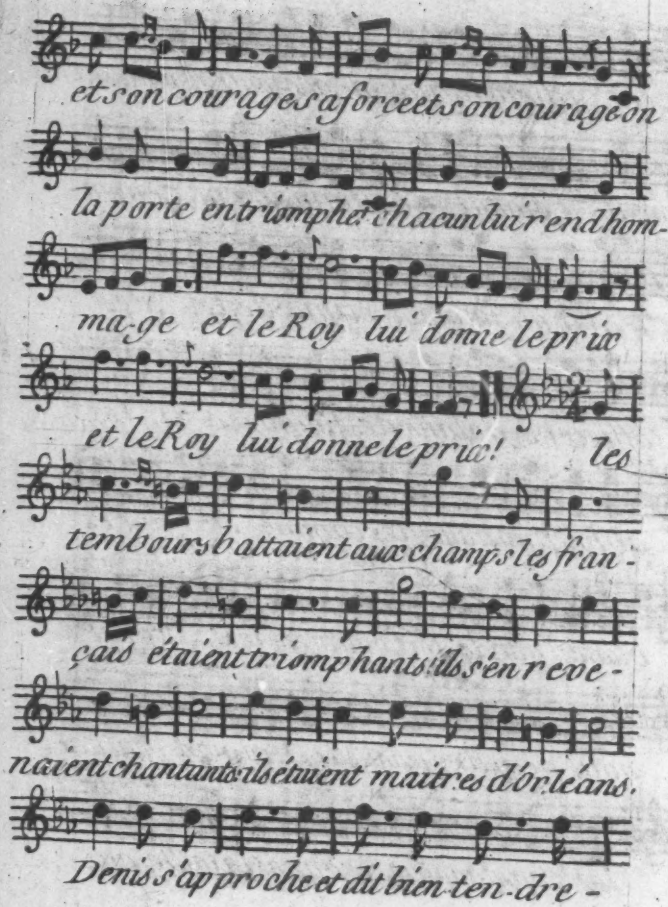 et son courage sa force et son courage on
la porte en triomphe! chacun lui rend hom-
ma-ge et le Roy lui donne le prix
et le Roy lui donne le prix! les
tembours battaient aux champs les fran-
çais étaient triomphants! ils s'en reve-
naient chantants ils étaient maitres d'Orléans.
Denis s'approche et dit bien ten-dre-